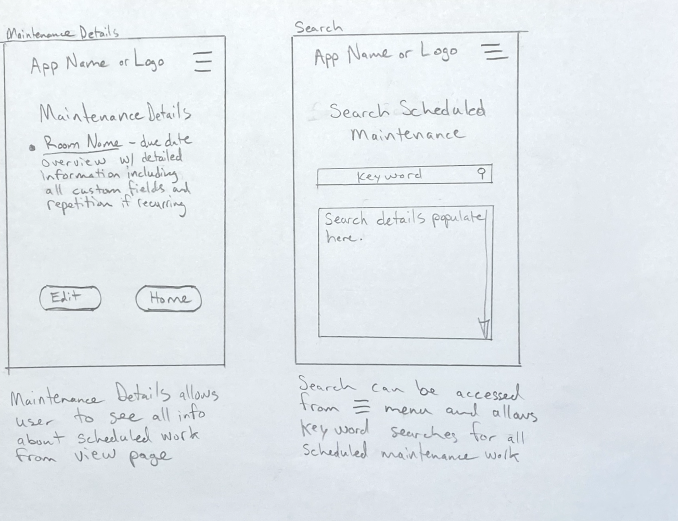 Maintenance Details
App Name or Logo
Maintenance Details
Room Name - due date
overview w/ detailed
Information including
all custom fields and
repetition if recurring
Edit
Home
Maintenance Details allows
user to see all info
about scheduled work
from view page
Search
App Name or Logo
Search Scheduled
Maintenance
Key word
Search details populate
here.
Search can be accessed
from menu and allows
Key word searches for all
Scheduled maintenance work